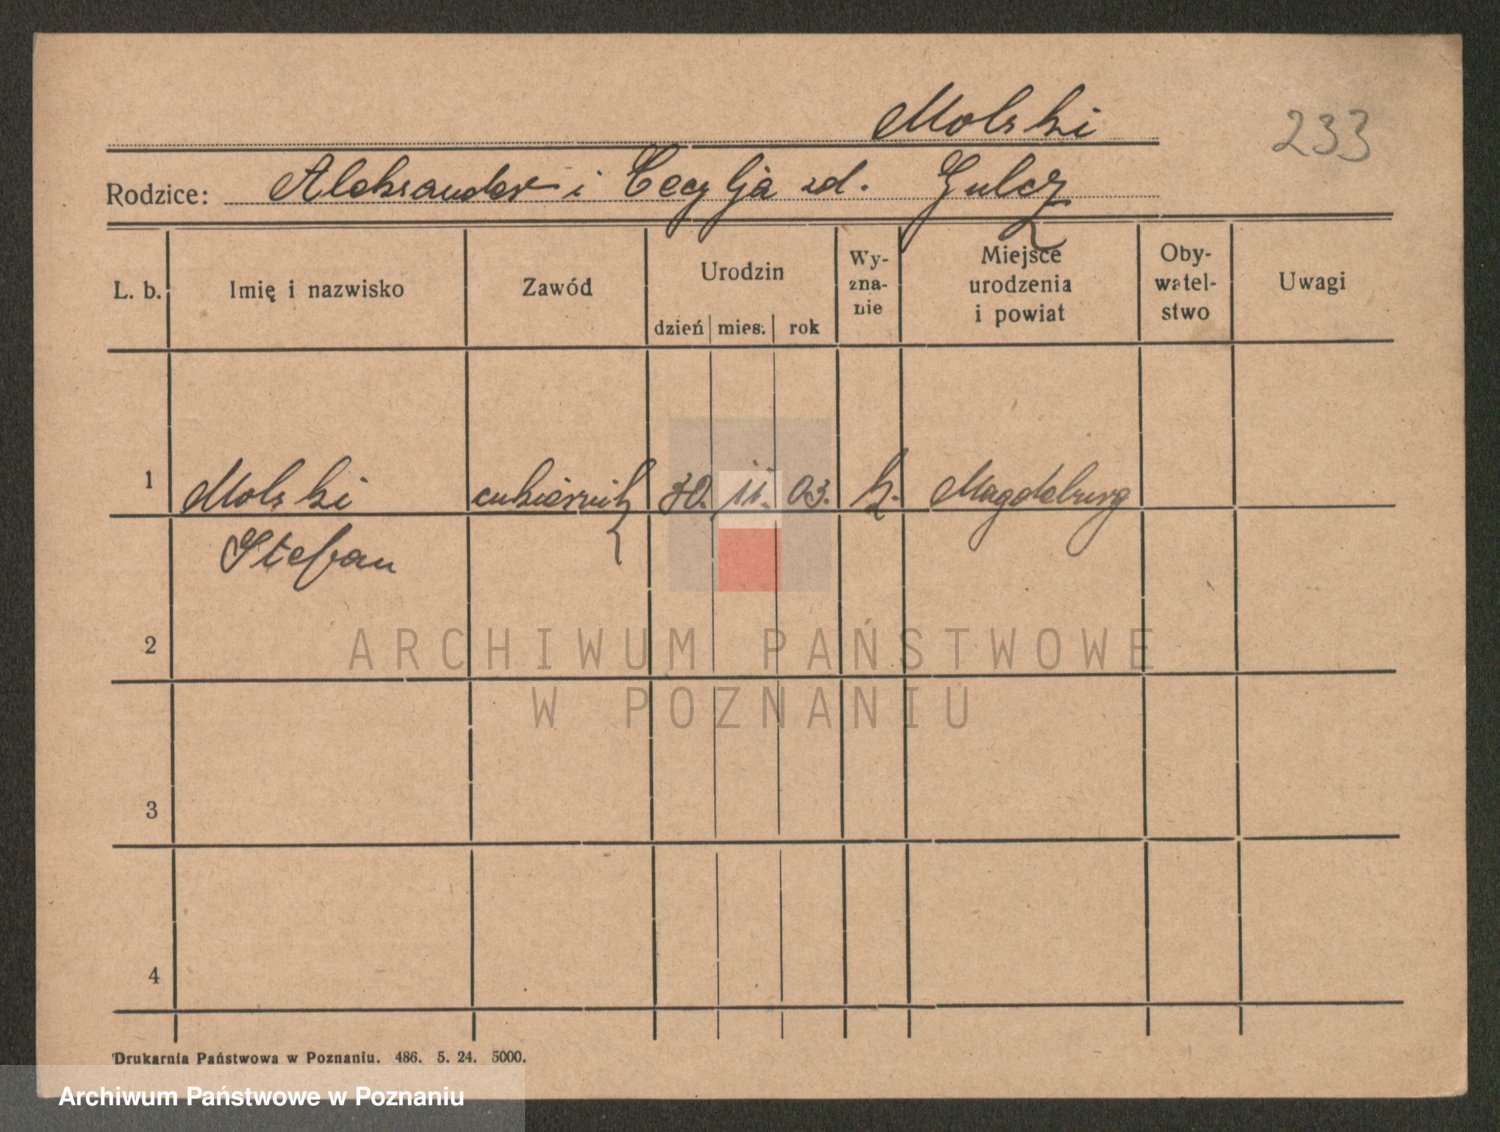 Molski
233
Rodzice: Aleksander i Cecylja zd. Gulcz
L. b. Imię i nazwisko Zawód Urodzin dzień mies. rok Wy-zna-nie Miejsce urodzenia i powiat Oby-watel-stwo Uwagi
1 Molski cukiernik 30. 11. 03. k. Magdeburg
Stefan
2
ARCHIWUM PAŃSTWOWE
W POZNANIU
3
4
Drukarnia Państwowa w Poznaniu. 486. 5. 24. 5000.
Archiwum Państwowe w Poznaniu